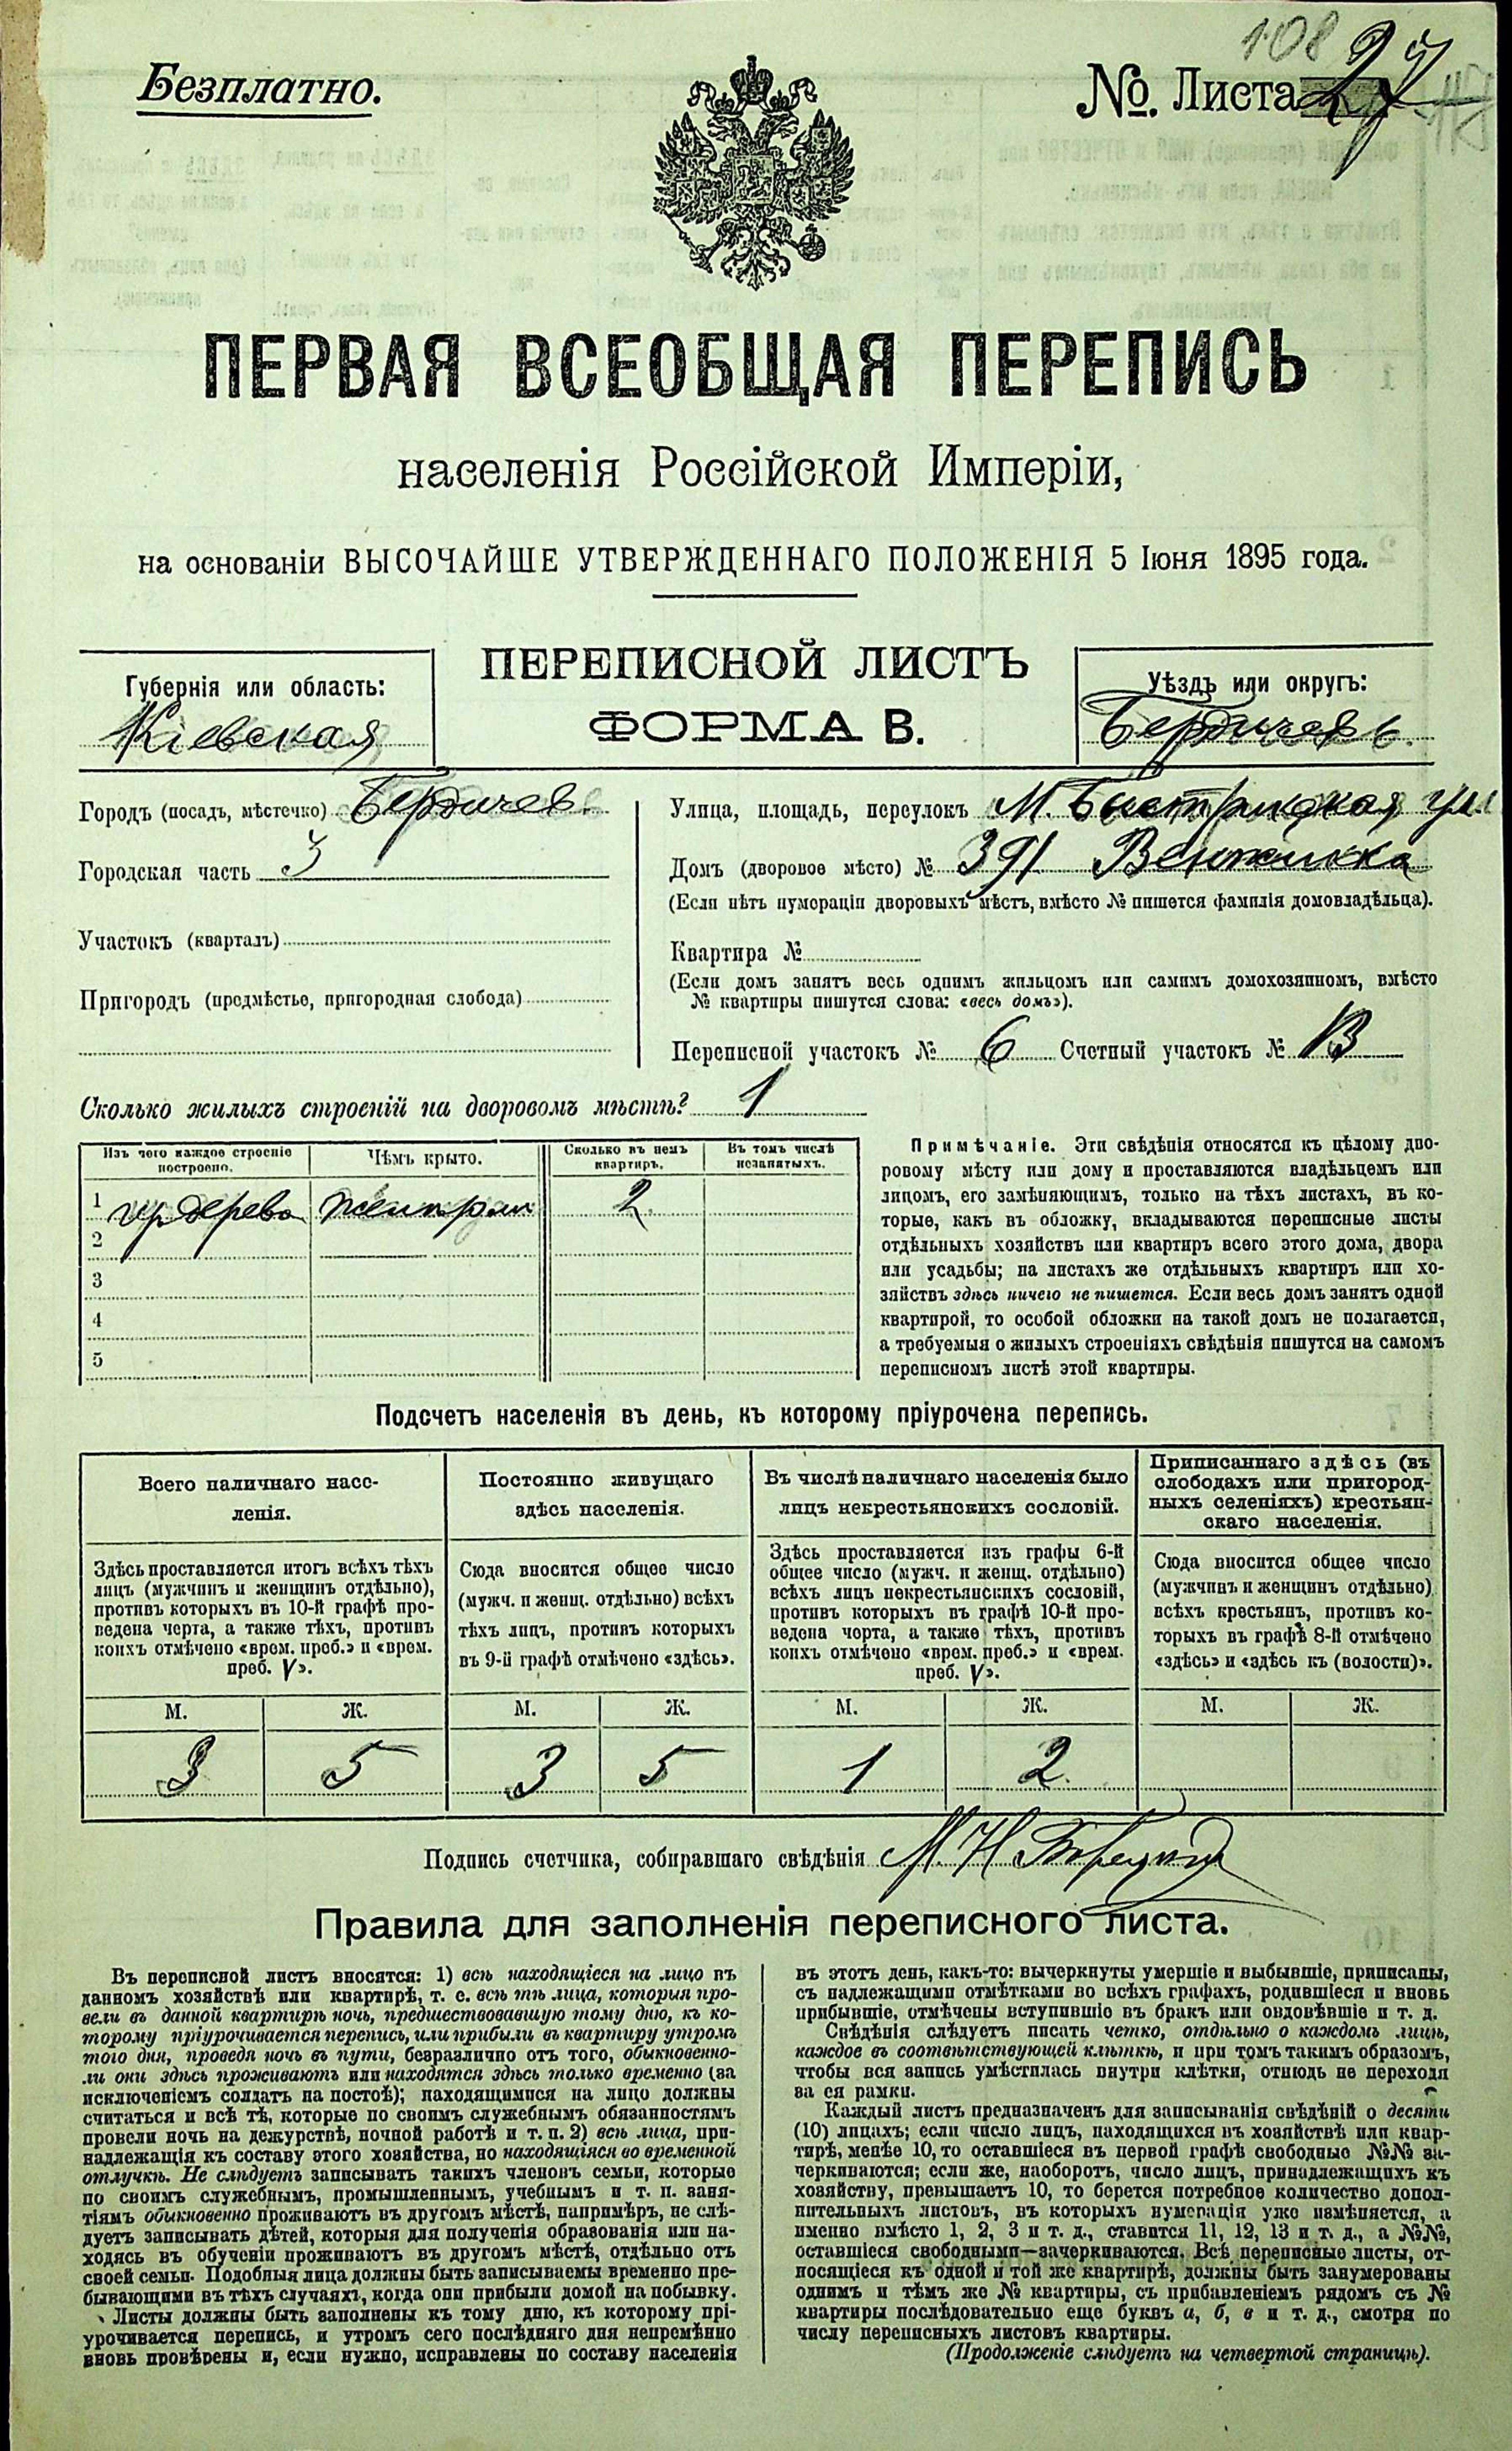 108
Безплатно.
№. Листа 27
ПЕРВАЯ ВСЕОБЩАЯ ПЕРЕПИСЬ
населенія Россійской Имперіи,
на основаніи ВЫСОЧАЙШЕ УТВЕРЖДЕННАГО ПОЛОЖЕНІЯ 5 Іюня 1895 года.
ПЕРЕПИСНОЙ ЛИСТЪ
ФОРМА В.
Губернія или область:
Кіевская
Уѣздъ или округъ:
Бердичевъ.
Городъ (посадъ, мѣстечко) Бердичев.
Городская часть 3
Участокъ (кварталъ)
Пригородъ (предмѣстье, пригородная слобода)
Улица, площадь, переулокъ М. Быстрицкая ул.
Домъ (дворовое мѣсто) № 391
(Если нѣтъ нумераціи дворовыхъ мѣстъ, вмѣсто № пишется фамилія домовладѣльца).
Квартира №
(Если домъ занятъ весь однимъ жильцомъ или самимъ домохозяиномъ, вмѣсто
№ квартиры пишутся слова: «весь домъ»).
Переписной участокъ № 6 Счетный участокъ №
Сколько жилыхъ строеній на дворовомъ мѣстѣ? 1
Изъ чего каждое строеніе
построено.
Чѣмъ крыто.
Сколько въ немъ
квартиръ.
Въ томъ числѣ
незанятыхъ.
1 дерево 2
2
3
4
5
Примѣчаніе. Эти свѣдѣнія относятся къ цѣлому дво-
ровому мѣсту или дому и проставляются владѣльцемъ или
лицомъ, его замѣняющимъ, только на тѣхъ листахъ, въ ко-
торые, какъ въ обложку, вкладываются переписные листы
отдѣльныхъ хозяйствъ или квартиръ всего этого дома, двора
или усадьбы; на листахъ же отдѣльныхъ квартиръ или хо-
зяйствъ здѣсь ничего не пишется. Если весь домъ занятъ одной
квартирой, то особой обложки на такой домъ не полагается,
а требуемыя о жилыхъ строеніяхъ свѣдѣнія пишутся на самомъ
переписномъ листѣ этой квартиры.
Подсчетъ населенія въ день, къ которому пріурочена перепись.
Всего наличнаго насе-
ленія.
Здѣсь проставляется итогъ всѣхъ тѣхъ
лицъ (мужчинъ и женщинъ отдѣльно),
противъ которыхъ въ 10-й графѣ про-
ведена черта, а также тѣхъ, противъ
коихъ отмѣчено «врем. преб.» и «врем.
преб. V».
Постоянно живущаго
здѣсь населенія.
Сюда вносится общее число
(мужч. и женщ. отдѣльно) всѣхъ
тѣхъ лицъ, противъ которыхъ
въ 9-й графѣ отмѣчено «здѣсь».
Въ числѣ наличнаго населенія было
лицъ некрестьянскихъ сословій.
Здѣсь проставляется изъ графы 6-й
общее число (мужч. и женщ. отдѣльно)
всѣхъ лицъ некрестьянскихъ сословій,
противъ которыхъ въ графѣ 10-й про-
ведена черта, а также тѣхъ, противъ
коихъ отмѣчено «врем. преб.» и «врем.
преб. V».
Приписаннаго здѣсь (въ
слободахъ или пригород-
ныхъ селеніяхъ) крестьян-
скаго населенія.
Сюда вносится общее число
(мужчинъ и женщинъ отдѣльно)
всѣхъ крестьянъ, противъ ко-
торыхъ въ графѣ 8-й отмѣчено
«здѣсь» и «здѣсь къ (волости)».
М. Ж. М. Ж. М. Ж. М. Ж.
3 5 3 5 1 2
Подпись счетчика, собиравшаго свѣдѣнія М. Н.
Правила для заполненія переписного листа.
Въ переписной листъ вносятся: 1) всѣ находящіеся на лицо въ
данномъ хозяйствѣ или квартирѣ, т. е. всѣ тѣ лица, которыя про-
вели въ данной квартирѣ ночь, предшествовавшую тому дню, къ ко-
торому пріурочивается перепись, или прибыли въ квартиру утромъ
того дня, проведя ночь въ пути, безразлично отъ того, обыкновенно-
ли они здѣсь проживаютъ или находятся здѣсь только временно (за
исключеніемъ солдатъ на постоѣ); находящимися на лицо должны
считаться и всѣ тѣ, которые по своимъ служебнымъ обязанностямъ
провели ночь на дежурствѣ, ночной работѣ и т. п. 2) всѣ лица, при-
надлежащія къ составу этого хозяйства, но находящіяся во временной
отлучкѣ. Не слѣдуетъ записывать такихъ членовъ семьи, которые
по своимъ служебнымъ, промышленнымъ, учебнымъ и т. п. заня-
тіямъ обыкновенно проживаютъ въ другомъ мѣстѣ, напримѣръ, не слѣ-
дуетъ записывать дѣтей, которыя для полученія образованія или на-
ходясь въ обученіи проживаютъ въ другомъ мѣстѣ, отдѣльно отъ
своей семьи. Подобныя лица должны быть записываемы временно пре-
бывающими въ тѣхъ случаяхъ, когда они прибыли домой на побывку.
Листы должны быть заполнены къ тому дню, къ которому прі-
урочивается перепись, и утромъ сего послѣдняго дня непремѣнно
вновь провѣрены и, если нужно, исправлены по составу населенія
въ этотъ день, какъ-то: вычеркнуты умершіе и выбывшіе, приписаны,
съ надлежащими отмѣтками во всѣхъ графахъ, родившіеся и вновь
прибывшіе, отмѣчены вступившіе въ бракъ или овдовѣвшіе и т. д.
Свѣдѣнія слѣдуетъ писать четко, отдѣльно о каждомъ лицѣ,
каждое въ соотвѣтствующей клѣткѣ, и при томъ такимъ образомъ,
чтобы вся запись умѣстилась внутри клѣтки, отнюдь не переходя
за ея рамки.
Каждый листъ предназначенъ для записыванія свѣдѣній о десяти
(10) лицахъ; если число лицъ, находящихся въ хозяйствѣ или квар-
тирѣ, менѣе 10, то оставшіеся въ первой графѣ свободные №№ за-
черкиваются; если же, наоборотъ, число лицъ, принадлежащихъ къ
хозяйству, превышаетъ 10, то берется потребное количество допол-
нительныхъ листовъ, въ которыхъ нумерація уже измѣняется, а
именно вмѣсто 1, 2, 3 и т. д., ставится 11, 12, 13 и т. д., а №№,
оставшіеся свободными—зачеркиваются. Всѣ переписные листы, от-
носящіеся къ одной и той же квартирѣ, должны быть занумерованы
однимъ и тѣмъ же № квартиры, съ прибавленіемъ рядомъ съ №
квартиры послѣдовательно еще буквъ а, б, в и т. д., смотря по
числу переписныхъ листовъ квартиры.
(Продолженіе слѣдуетъ на четвертой страницѣ).